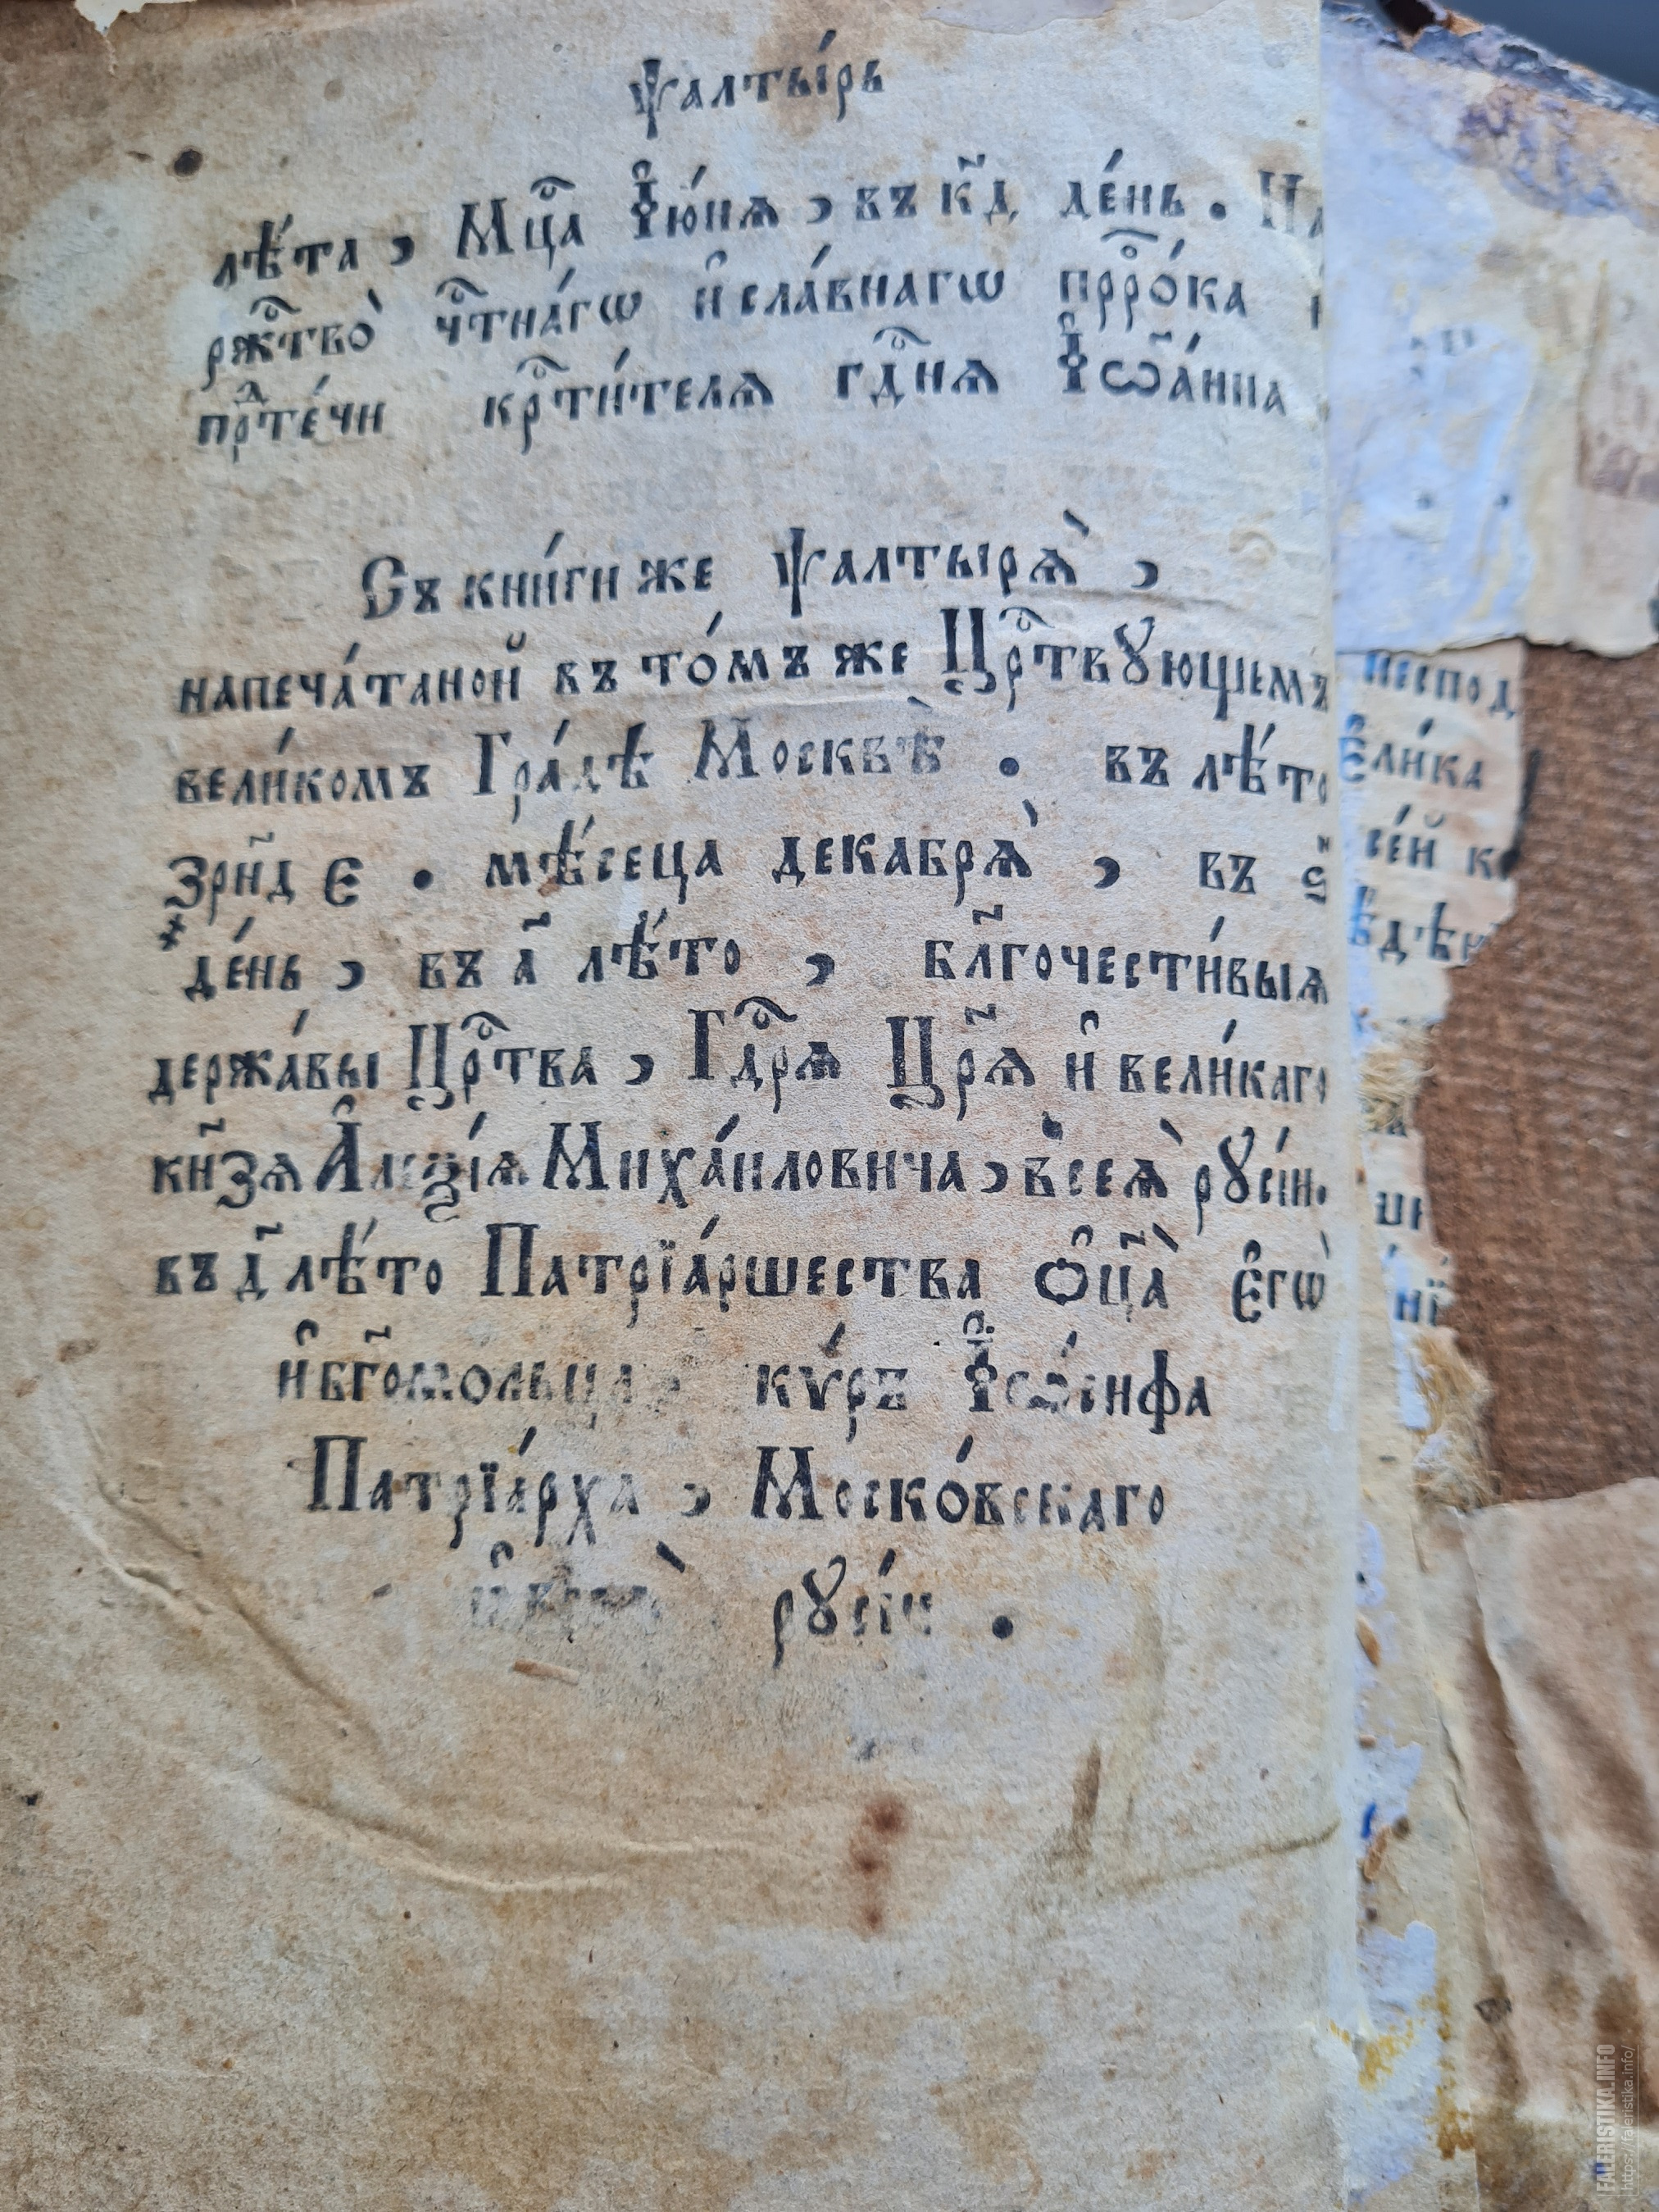 Ѱалты́рь
лѣ́та, Мц҇а І҆ю́нѧ, въ к҃д де́нь. На
рж҇тво̀ ч҇тна́гѡ и҆ сла́внагѡ прⷪ҇ро́ка
прⷣте́чи кр҇ти́телѧ гд҇нѧ І҆ѡ҃а́нна
Съ кни́ги же ѱалтырѧ̀,
напеча́таной въ то́мъ же Цр҇твꙋющемъ
вели́комъ Гра́дѣ Москвѣ̀. въ лѣ́то
҂зрн҃д є. мѣ́сеца декабрѧ̀, въ ѕ҃
де́нь, въ а҃ лѣ́то, бл҃гочести́выѧ
держа́вы Цр҇тва, Гд҇рѧ Цр҃ѧ и҆ вели́каго
кн҃зѧ А҆леѯі́ѧ Миха́иловича, всеѧ̀ рꙋсі́и.
въ д҃ лѣ́то Патрїа́ршества ѻ҆ц҃а̀ є҆гѡ̀
и҆ бг҃омольца, кѵ́ръ І҆ѡ́сифа
Патрїа́рха, Моско́вскаго
и҆ всеѧ̀ рꙋсі́и.
неспод
є҆ли́ка
се́й к
ѣдѣн
ши
нї
FALERISTIKA.INFO
https://faleristika.info/